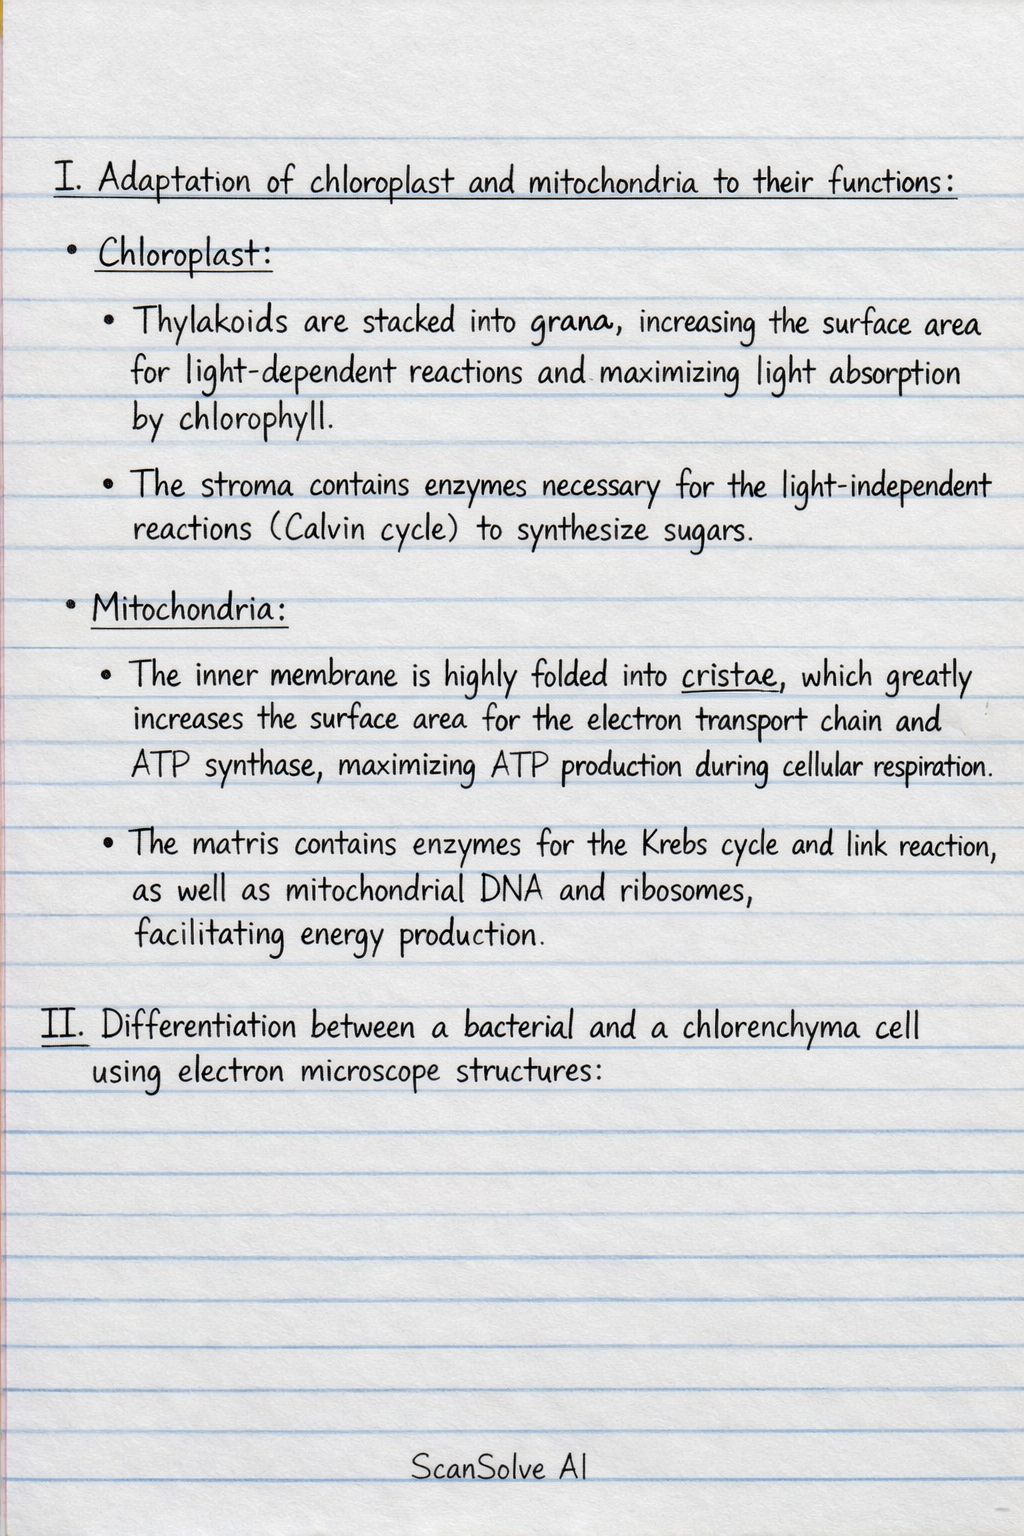 I. Adaptation of chloroplast and mitochondria to their functions:
• Chloroplast:
• Thylakoids are stacked into grana, increasing the surface area
for light-dependent reactions and maximizing light absorption
by chlorophyll.
• The stroma contains enzymes necessary for the light-independent
reactions (Calvin cycle) to synthesize sugars.
• Mitochondria:
• The inner membrane is highly folded into cristae, which greatly
increases the surface area for the electron transport chain and
ATP synthase, maximizing ATP production during cellular respiration.
• The matris contains enzymes for the Krebs cycle and link reaction,
as well as mitochondrial DNA and ribosomes,
facilitating energy production.
II. Differentiation between a bacterial and a chlorenchyma cell
using electron microscope structures:
ScanSolve AI